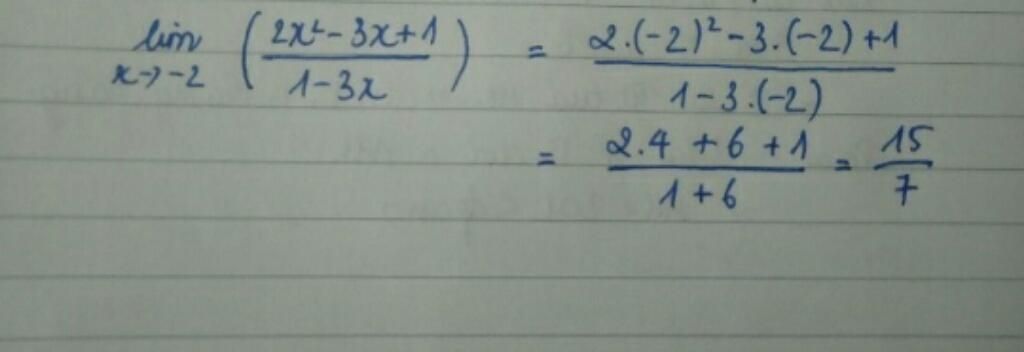 lim x→-2 ( (2x² - 3x + 1) / (1 - 3x) ) = (2.(-2)² - 3.(-2) + 1) / (1 - 3.(-2))
= (2.4 + 6 + 1) / (1 + 6) = 15 / 7